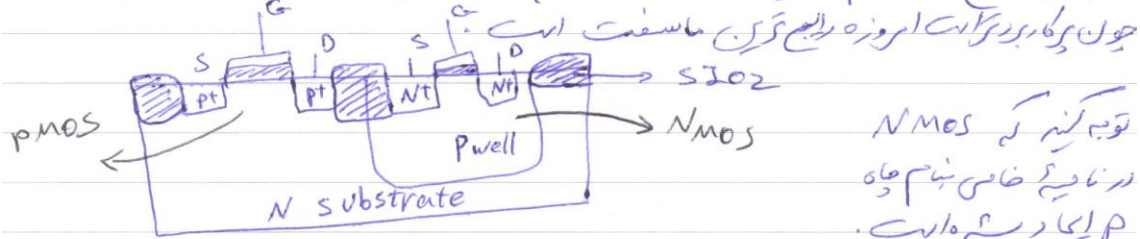 چون پرکاربردتر است امروزه رایج ترین ماسفت است.
G G
S D S D
P+ P+ N+ N+ → SIO2
PMOS
P well
NMOS
N substrate
توجه کنید که NMOS
در ناحیهٔ خاصی بنام چاه
P ایجاد شده است.